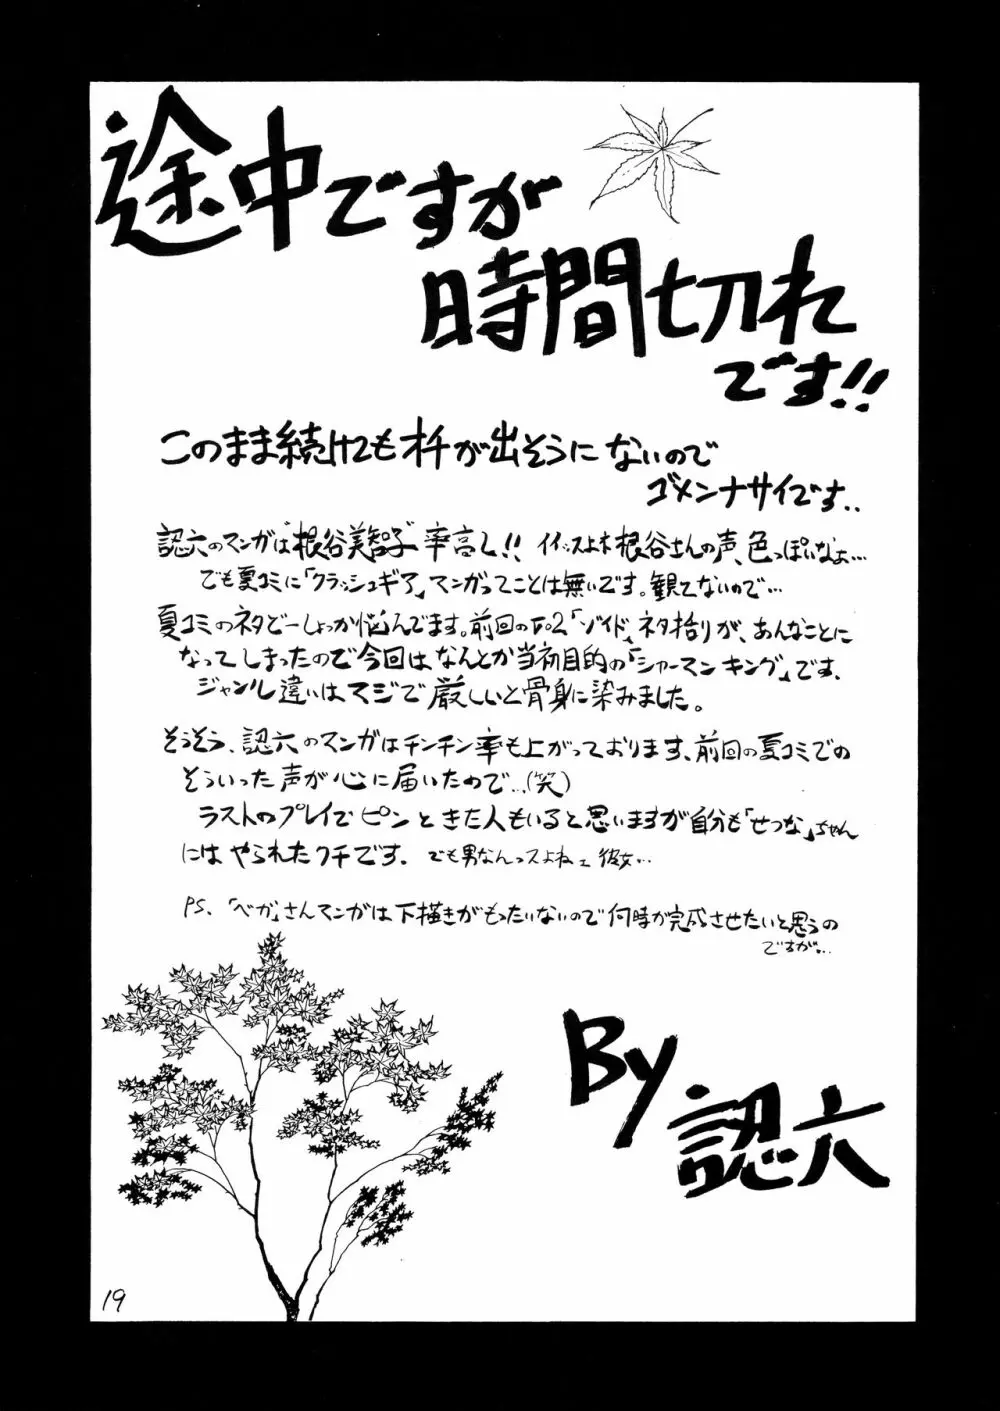 途中ですが
時間切れ
です!!
このまま続けてもオチが出そうにないので
ゴメンナサイです..
認六のマンガは"根谷美智子"率高し!! イイッスよネ根谷さんの声、色っぽいなぁ…
でも夏コミに「クラッシュギア」マンガってことは無いです。観てないので…
夏コミのネタどーしょっか悩んでます。前回のVo2「ゾイド」ネタ括りが、あんなことに
なってしまったので今回はなんとか当初目的の「シャーマンキング」です、
ジャンル違いはマジで厳しいと骨身に染みました。
そうそう、認六のマンガはチンチン率も上がっております、前回の夏コミでの
そういった声が心に届いたので…(笑)
ラストのプレイでピンときた人もいると思いますが自分も「せつな」ちゃん
にはやられたクチです. でも男なんっスよねェ彼女…
PS、「ベガ」さんマンガは下描きがもったいないので何時か完成させたいと思うの
ですが。…
By
認六
19